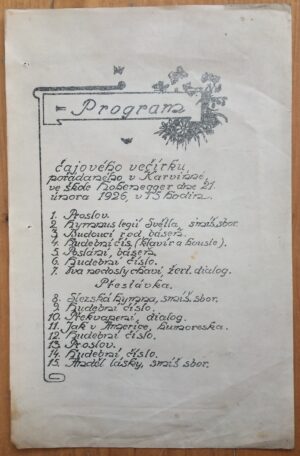 Program
čajového večírku,
pořádaného v Karvinné,
ve škole Hohenegger dne 21.
února 1926, v 15 hodin.
1. Proslov.
2. Hymnus legií Světla, smíš. sbor.
3. Budoucí rod, báseň.
4. Hudební čís. (klavír a housle).
5. Poslání, báseň.
6. Hudební číslo.
7. Dva nedoslýchaví, žert. dialog.
Přestávka.
8. Slezská hymna, smíš. sbor.
9. Hudební číslo.
10. Překvapení, dialog.
11. Jak v Americe, humoreska.
12. Hudební číslo.
13. Proslov.
14. Hudební číslo.
15. Anděl lásky, smíš. sbor.